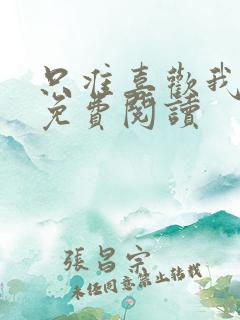 只准喜歡我
免費閱讀
張昌宗
未任同意禁止转载